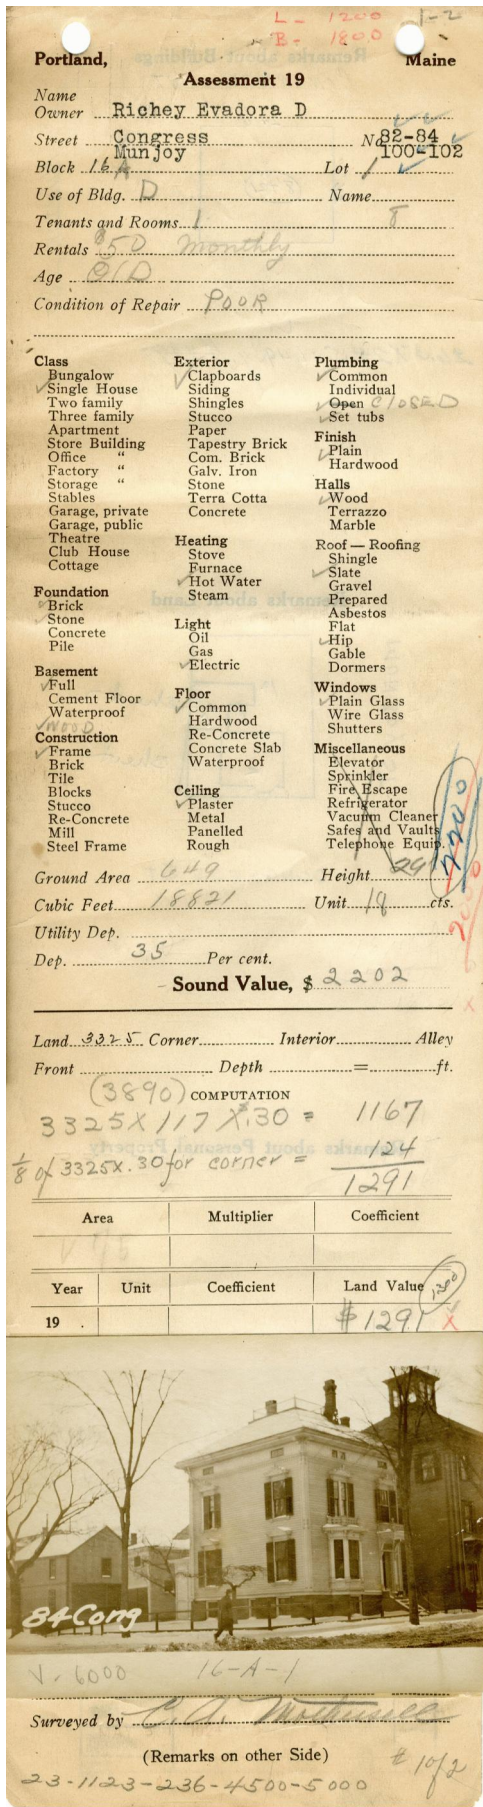 L - 1200 1-2
B - 1800
Portland, Maine
Assessment 19
Name
Owner Richey Evadora D
Street Congress No 82-84
Munjoy 100-102
Block 16A Lot 1
Use of Bldg. D Name
Tenants and Rooms 1 8
Rentals $50 Monthly
Age OLD
Condition of Repair POOR
Class
Bungalow
Single House
Two family
Three family
Apartment
Store Building
Office "
Factory "
Storage "
Stables
Garage, private
Garage, public
Theatre
Club House
Cottage
Foundation
Brick
Stone
Concrete
Pile
Basement
Full
Cement Floor
Waterproof
WOOD
Construction
Frame
Brick
Tile
Blocks
Stucco
Re-Concrete
Mill
Steel Frame
Exterior
Clapboards
Siding
Shingles
Stucco
Paper
Tapestry Brick
Com. Brick
Galv. Iron
Stone
Terra Cotta
Concrete
Heating
Stove
Furnace
Hot Water
Steam
Light
Oil
Gas
Electric
Floor
Common
Hardwood
Re-Concrete
Concrete Slab
Waterproof
Ceiling
Plaster
Metal
Panelled
Rough
Plumbing
Common
Individual
Open CLOSED
Set tubs
Finish
Plain
Hardwood
Halls
Wood
Terrazzo
Marble
Roof — Roofing
Shingle
Slate
Gravel
Prepared
Asbestos
Flat
Hip
Gable
Dormers
Windows
Plain Glass
Wire Glass
Shutters
Miscellaneous
Elevator
Sprinkler
Fire Escape
Refrigerator
Vacuum Cleaner
Safes and Vaults
Telephone Equip.
2200
Ground Area 649 Height 29
Cubic Feet 18821 Unit 18 cts.
Utility Dep.
Dep. 35 Per cent.
Sound Value, $ 2202
Land 3325 Corner Interior Alley
Front Depth = ft.
(3890) COMPUTATION
3325 X 117 X .30 = 1167
1/8 of 3325 x .30 for corner = 124
1291
Area Multiplier Coefficient
Year Unit Coefficient Land Value 1300
19 $1291 X
84 Cong
V - 6000 16-A-1
Surveyed by C. A.
(Remarks on other Side)
# 1 of 2
23-1123-236-4500-5000